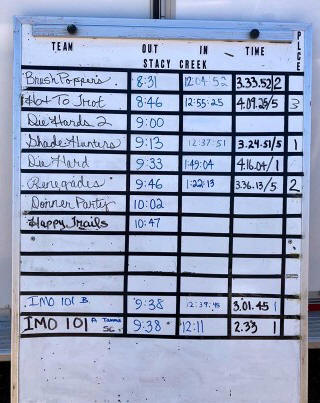 TEAM OUT IN TIME PLCE
STACY CREEK
Brush Poppers 8:31 12:04:52 3.33.52 2
Hot To Trot 8:46 12:55:25 4.09.25/5 3
Die Hards 2 9:00
Shade Hunters 9:13 12:37:51 3.24.51/5 1
Die Hard 9:33 1:49:04 4.16.04/1
Renegades 9:46 1:22:13 3.36.13/5 2
Donner Party 10:02
Happy Trails 10:47
IMO 101 B 9:38 12:39:45 3.01.45 1
IMO 101 A 9:38 12:11 2:33 1